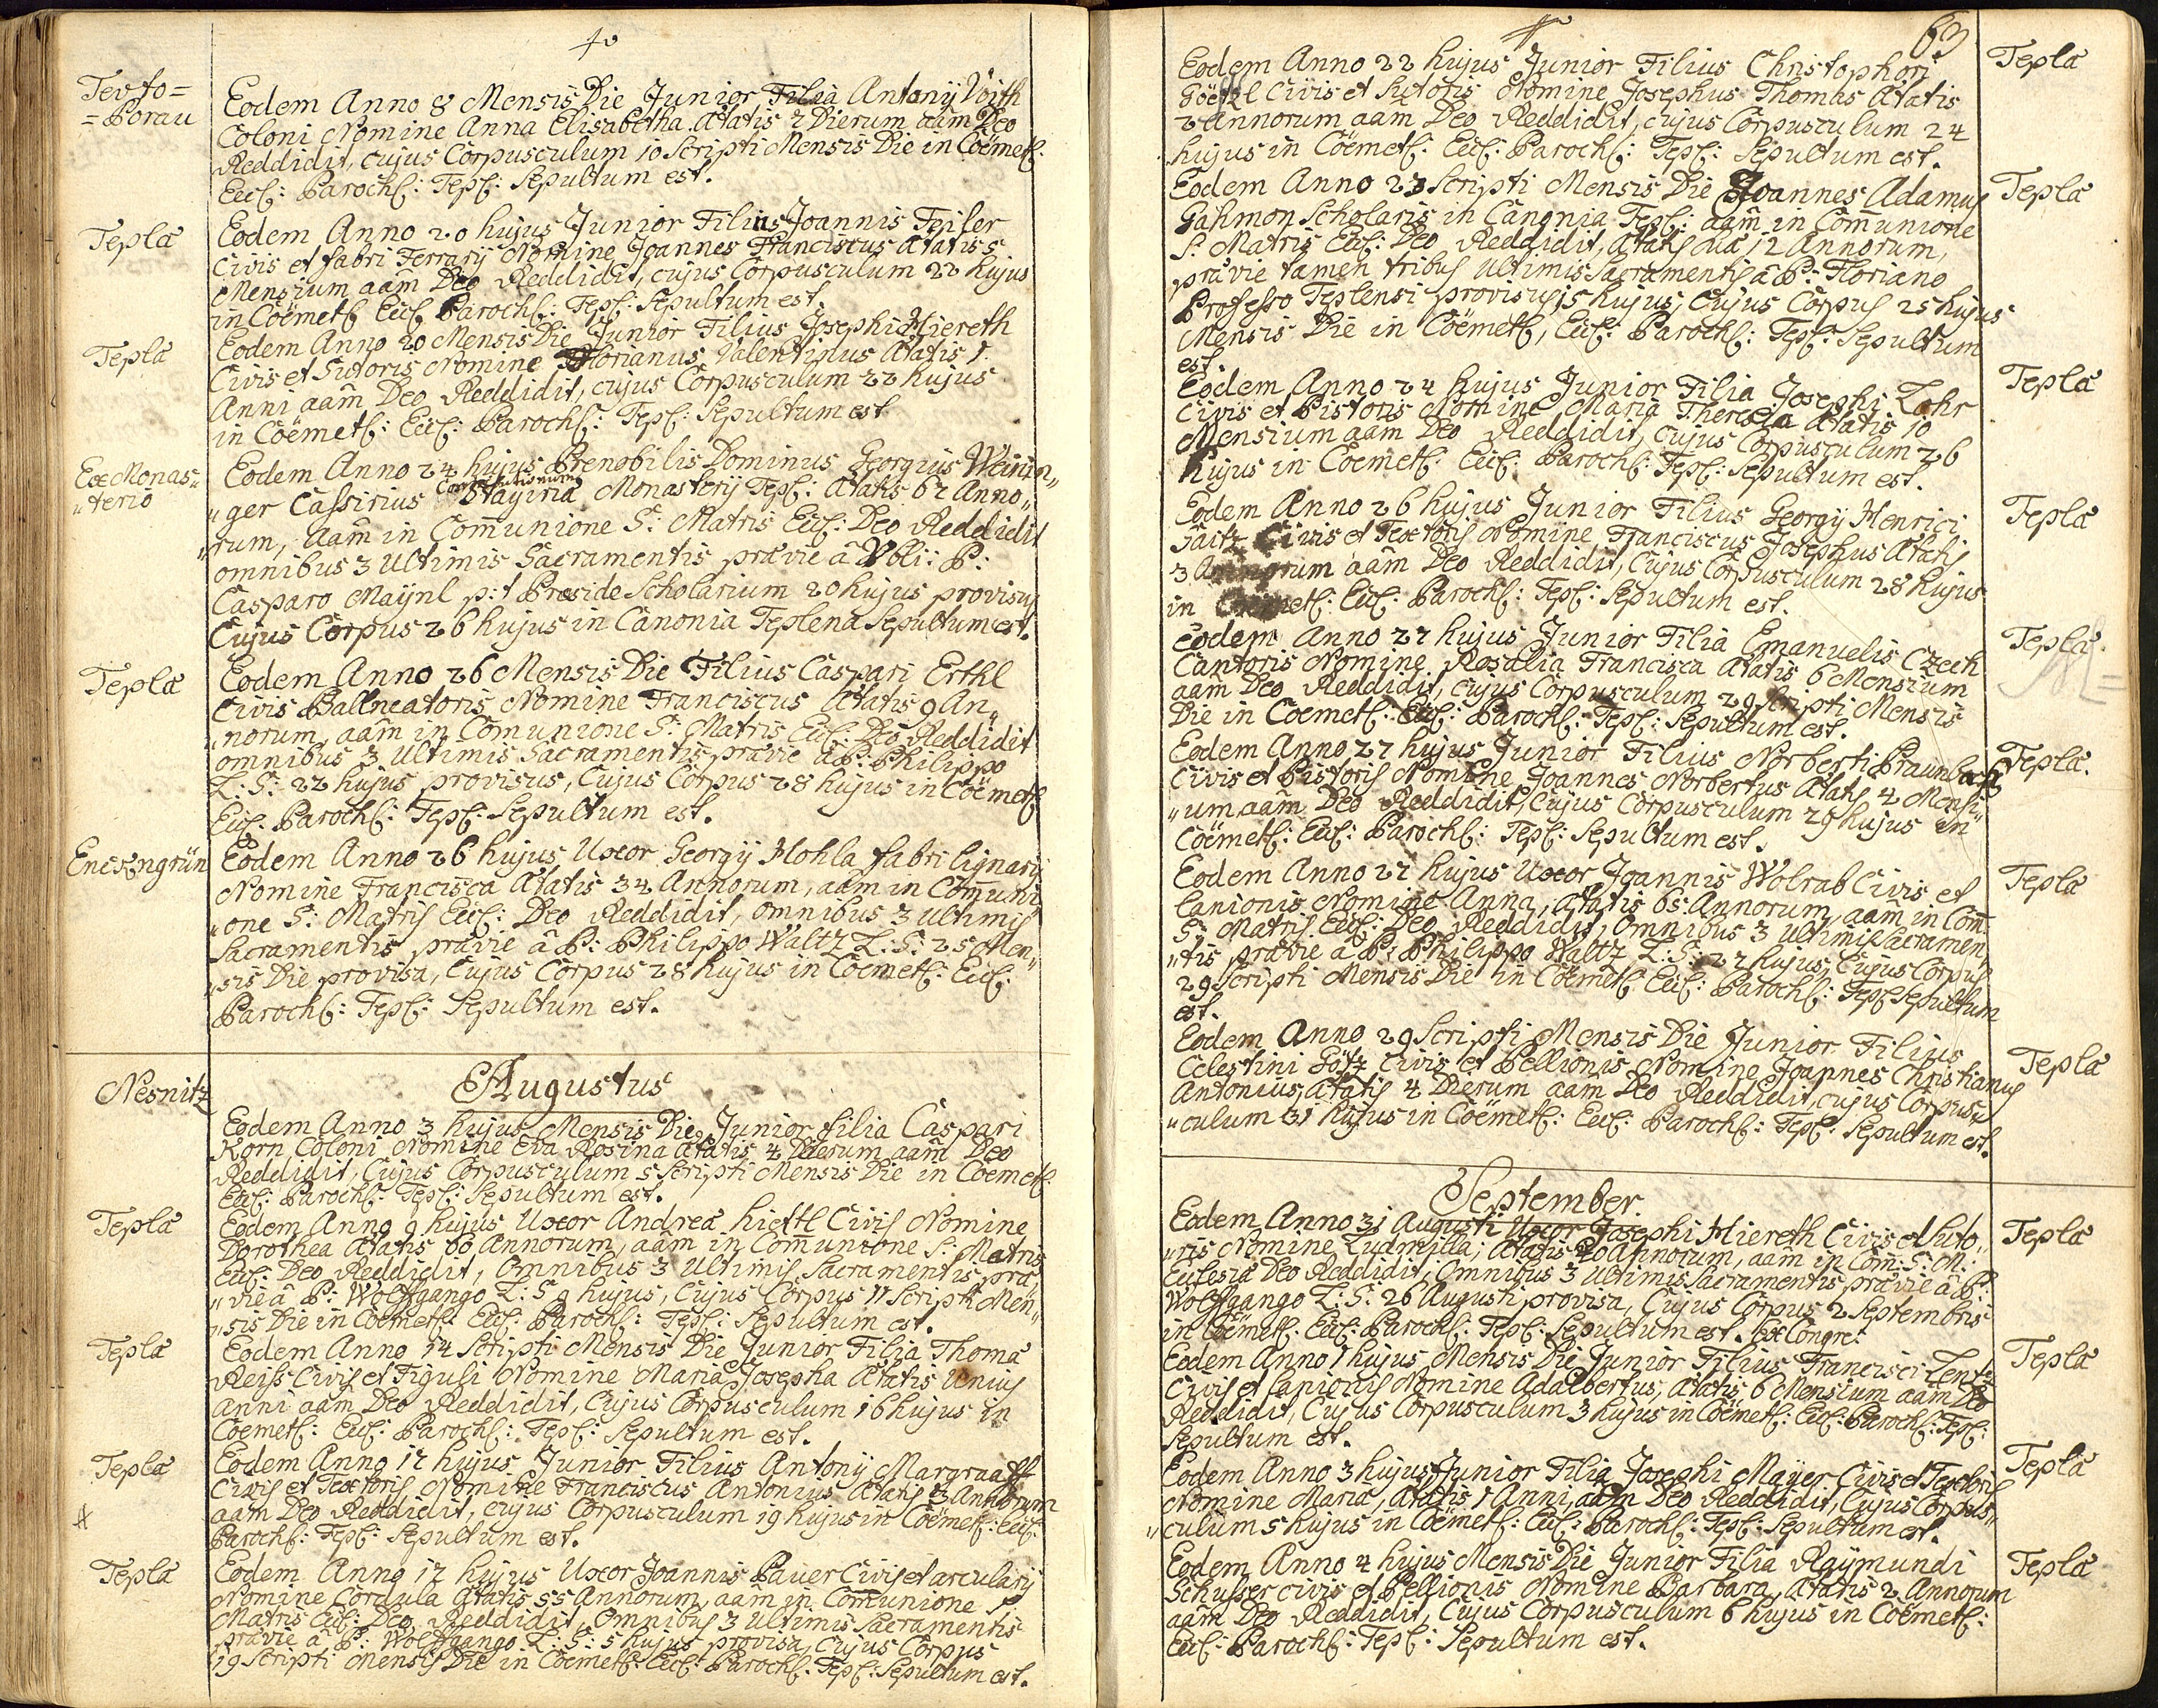 Tevto=
=Porau
Eodem Anno 8 Mensis Die Junior Filia Antonij Voith
Coloni Nomine Anna Elisabetha Ætatis 2 Dierum aam Deo
Reddidit, cujus Corpusculum 10 Scripti Mensis Die in Cöemet:
Eccl: Paroch: Tepl: Sepultum est.
Tepla
Eodem Anno 20 hujus Junior Filius Joannis Feiler
Civis et fabri Ferrarij Nomine Joannes Franciscus Ætatis 5
Mensium aam Deo Reddidit, cujus Corpusculum 22 hujus
in Cöemet: Eccl: Paroch: Tepl: Sepultum est.
Tepla
Eodem Anno 20 Mensis Die Junior Filius Josephi Hiereth
Civis et Sutoris Nomine Florianus Valentinus Ætatis 1.
Anni aam Deo Reddidit, cujus Corpusculum 22 hujus
in Cöemet: Eccl: Paroch: Tepl: Sepultum est
Ex Monas„
„terio
Eodem Anno 24 hujus Prenobilis Dominus Georgius Weinin„
„ger Cassirius Stayiria Monasterij Tepl: Ætatis 62 Anno„
„rum, aam in Communione S: Matris Eccl: Deo Reddidit
omnibus 3 Ultimis Sacramentis prævie â Voli: P:
Casparo Maijnl p:t Præside Scholarium 20 hujus provisus
Cujus Corpus 26 hujus in Canonia Teplena Sepultum est.
Tepla
Eodem Anno 26 Mensis Die Filius Caspari Erthl
Civis Ballneatoris Nomine Franciscus Ætatis 9 An„
„norum, aam in Comunione S: Matris Eccl: Deo Reddidit
omnibus 3 Ultimis Sacramentis prævie â P: Philippo
L: S: 22 hujus provisus, Cujus Corpus 28 hujus in Cöemet:
Eccl: Paroch: Tepl: Sepultum est.
Enckengrün
Eodem Anno 26 hujus Uxor Georgij Hohla fabri lignarij
Nomine Francisca Ætatis 34 Annorum, aam in Comuni
„one S: Matris Eccl: Deo Reddidit, omnibus 3 ultimis
Sacramentis prævie â P: Philippo Waltz L: S: 25 Men„
„sis Die provisa, Cujus Corpus 28 hujus in Cöemet: Eccl:
Paroch: Tepl: Sepultum est.
Augustus
Nesnitz
Eodem Anno 3 hujus Mensis Die Junior filia Caspari
Korn Coloni Nomine Eva Rosina Ætatis 4 Dierum aam Deo
Reddidit, Cujus Corpusculum 5 Scripti Mensis Die in Cöemet:
Eccl: Paroch: Tepl: Sepultum est.
Tepla
Eodem Anno 9 hujus Uxor Andreæ hiettl Civis Nomine
Dorothea Ætatis 60 Annorum, aam in Communione S: Matris
Eccl: Deo Reddidit, Omnibus 3 Ultimis Sacramentis præ„
„vie â P: Wolffgango L: S 9 hujus, Cujus Corpus 11 Scripti Men„
„sis Die in Cöemet: Eccl: Paroch: Tepl: Sepultum est.
Tepla
Eodem Anno 14 Scripti Mensis Die Junior Filia Thoma
Reiss Civis et Figuli Nomine Maria Josepha Ætatis Unius
Anni aam Deo Reddidit, Cujus Corpusculum 16 hujus in
Cöemet: Eccl: Paroch: Tepl: Sepultum est.
Tepla
Eodem Anno 17 hujus Junior Filius Antonij Margraaff
Civis et Textoris Nomine Franciscus Antonius Ætatis 3 Annorum
aam Deo Reddidit, cujus Corpusculum 19 hujus in Cöemet: Eccl:
Paroch: Tepl: Sepultum est.
Tepla
Eodem Anno 17 hujus Uxor Joannis Pauer Civis et arcularij
Nomine Cordula Ætatis 55 Annorum, aam in Communione S
Matris Eccl: Deo Reddidit, Omnibus 3 Ultimis Sacramentis
prævie â P: Wolffgango L: S: 5 hujus provisa, Cujus Corpus
19 Scripti Mensis Die in Cöemet: Eccl: Paroch: Tepl: Sepultum est.
63
Eodem Anno 22 hujus Junior Filius Christophori
Göetzl Civis et Sutoris Nomine Josephus Thomas Ætatis
2 Annorum aam Deo Reddidit, cujus Corpusculum 24
hujus in Cöemet: Eccl: Paroch: Tepl: Sepultum est.
Tepla
Eodem Anno 23 Scripti Mensis Die Joannes Adamus
Gahmon Scholaris in Canonia Tepl: aam in Communione
S: Matris Eccl: Deo Reddidit, Ætatis suæ 12 Annorum,
prævie tamen tribus Ultimis Sacramentis â P: Floriano
Professo Teplensi provisus 15 hujus, Cujus Corpus 25 hujus
Mensis Die in Cöemet:, Eccl: Paroch: Tepl: Sepultum
est.
Tepla
Eodem Anno 24 hujus Junior Filia Josephi Lohr
Civis et Pistoris Nomine Maria Theresia Ætatis 10
Mensium aam Deo Reddidit, cujus Corpusculum 26
hujus in Cöemet: Eccl: Paroch: Tepl: Sepultum est.
Tepla
Eodem Anno 26 hujus Junior Filius Georgij Henrici
Civis et Textoris Nomine Franciscus Josephus Ætatis
3 Annorum aam Deo Reddidit, Cujus Corpusculum 28 hujus
in Cöemet: Eccl: Paroch: Tepl: Sepultum est.
Tepla
Eodem Anno 27 hujus Junior Filia Emanuelis Czech
Cantoris Nomine Rosalia Francisca Ætatis 6 Mensium
aam Deo Reddidit, cujus Corpusculum 29 Scripti Mensis
Die in Cöemet: Eccl: Paroch: Tepl: Sepultum est.
Tepla
Eodem Anno 27 hujus Junior Filius Norberti Braunbach
Civis et Pistoris Nomine Joannes Norbertus Ætatis 4 Mensi„
„um aam Deo Reddidit, Cujus Corpusculum 29 hujus in
Cöemet: Eccl: Paroch: Tepl: Sepultum est.
Tepla.
Eodem Anno 27 hujus Uxor Joannis Wolrab Civis et
lanionis Nomine Anna, Ætatis 65 Annorum, aam in Com̃
S: Matris Eccl: Deo Reddidit, Omnibus 3 Ultimis Sacramen„
„tis prævie â P: Philippo Waltz L: S: 27 hujus, Cujus Corpus
29 Scripti Mensis Die in Cöemet: Eccl: Paroch: Tepl: Sepultum
est.
Tepla
Eodem Anno 29 Scripti Mensis Die Junior Filius
Celestini Götz Civis et Pellionis Nomine Joannes Christianus
Antonius, Ætatis 4 Dierum aam Deo Reddidit, cujus Corpus„
„culum 31 hujus in Cöemet: Eccl: Paroch: Tepl: Sepultum est.
Tepla
September.
Eodem Anno 31 Augusti Uxor Josephi Hiereth Civis et Suto„
„ris Nomine Ludmilla, Ætatis 40 Annorum, aam in Com: S: M:
Ecclesiæ Deo Reddidit, Omnibus 3 Ultimis Sacramentis prævie â P:
Wolffgango L: S: 26 Augusti provisa, Cujus Corpus 2 Septembris
in Cöemet: Eccl: Paroch: Tepl: Sepultum est. Ex Congre:
Tepla
Eodem Anno 1 hujus Mensis Die Junior Filius Francisci Lentz
Civis et lanionis Nomine Adalbertus, Ætatis 6 Mensium aam Deo
Reddidit, Cujus Corpusculum 3 hujus in Cöemet: Eccl: Paroch: Tepl:
Sepultum est.
Tepla
Eodem Anno 3 hujus Junior Filia Josephi Mayer Civis et Textoris
Nomine Maria, Ætatis 1 Anni, aam Deo Reddidit, Cujus Corpus„
„culum 5 hujus in Cöemet: Eccl: Paroch: Tepl: Sepultum est.
Tepla
Eodem Anno 4 hujus Mensis Die Junior Filia Raymundi
Schusser civis et Pellionis Nomine Barbara, Ætatis 2 Annorum
aam Deo Reddidit, Cujus Corpusculum 6 hujus in Cöemet:
Eccl: Paroch: Tepl: Sepultum est.
Tepla